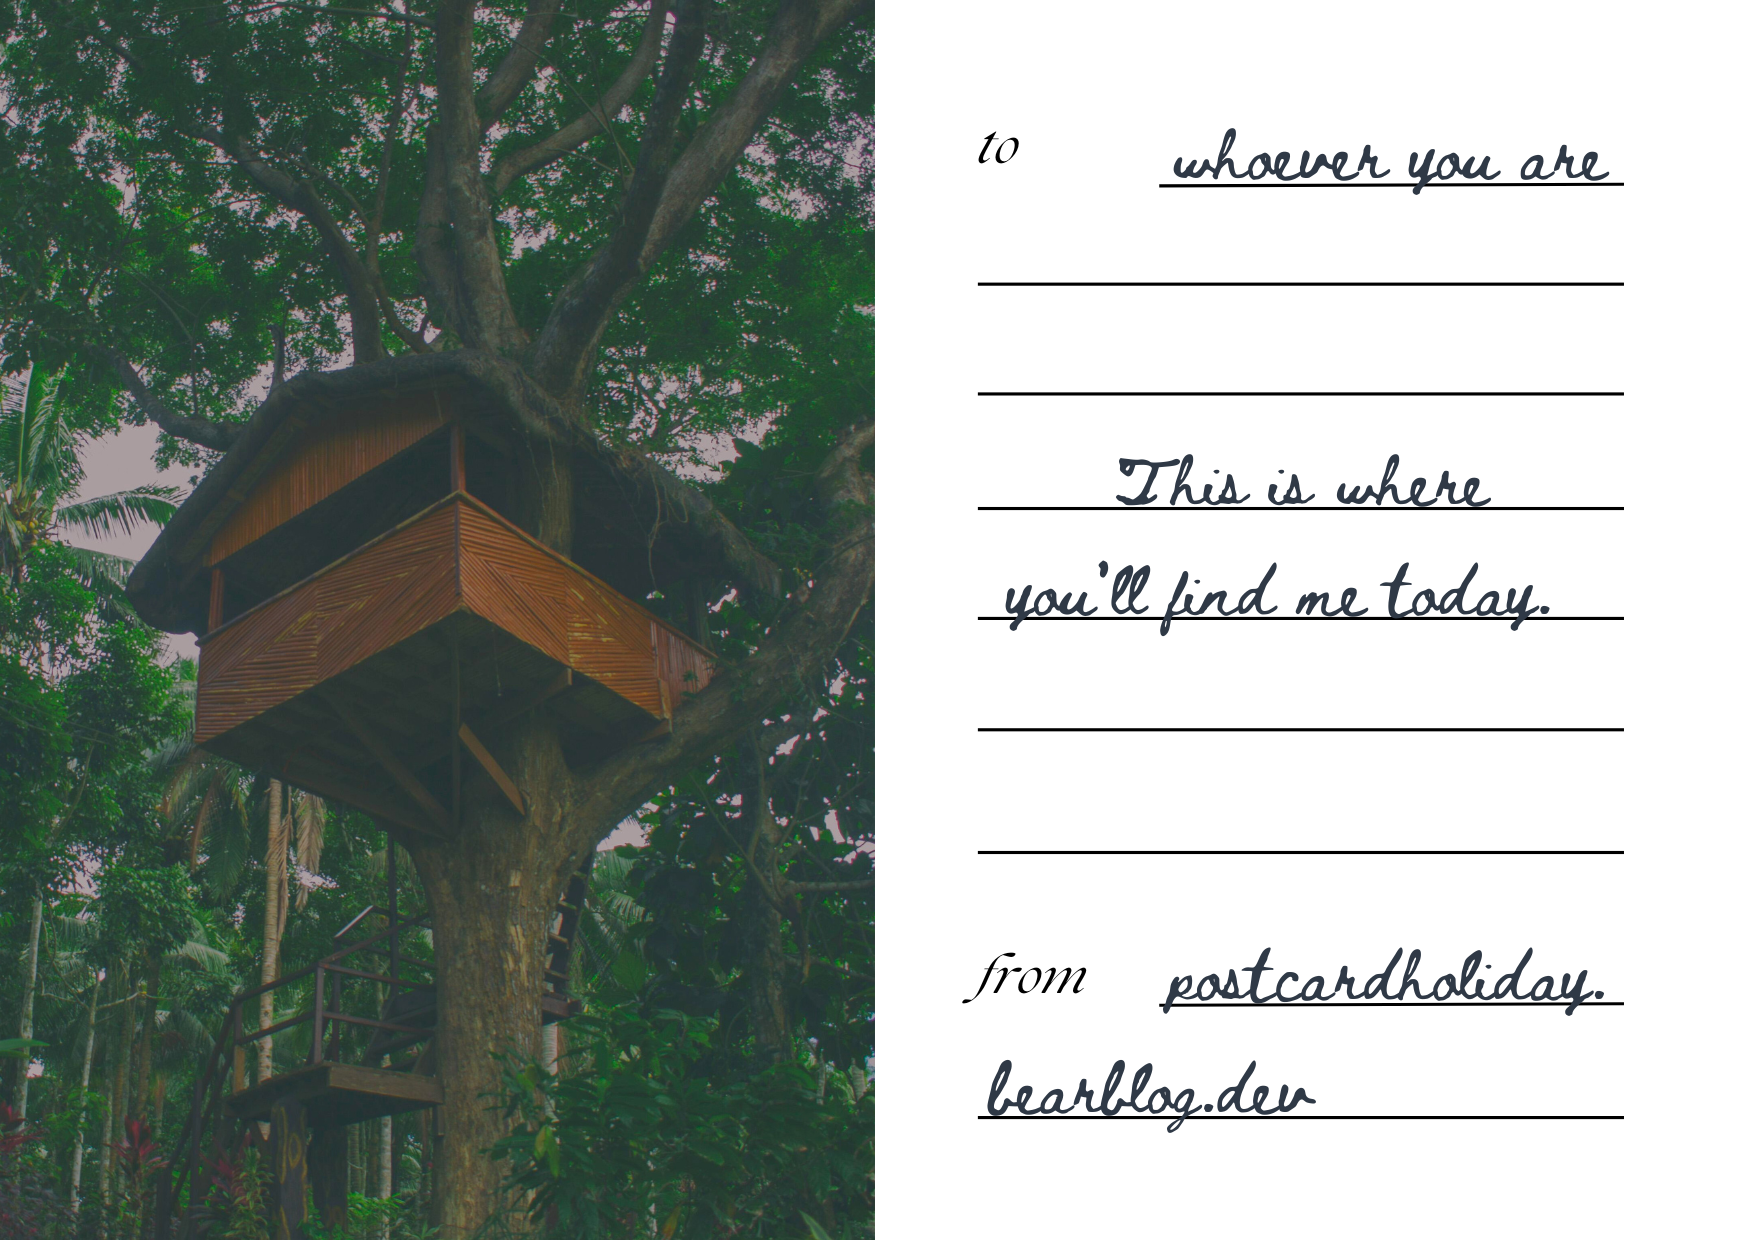 to whoever you are
This is where
you'll find me today.
from postcardholiday.
bearblog.dev